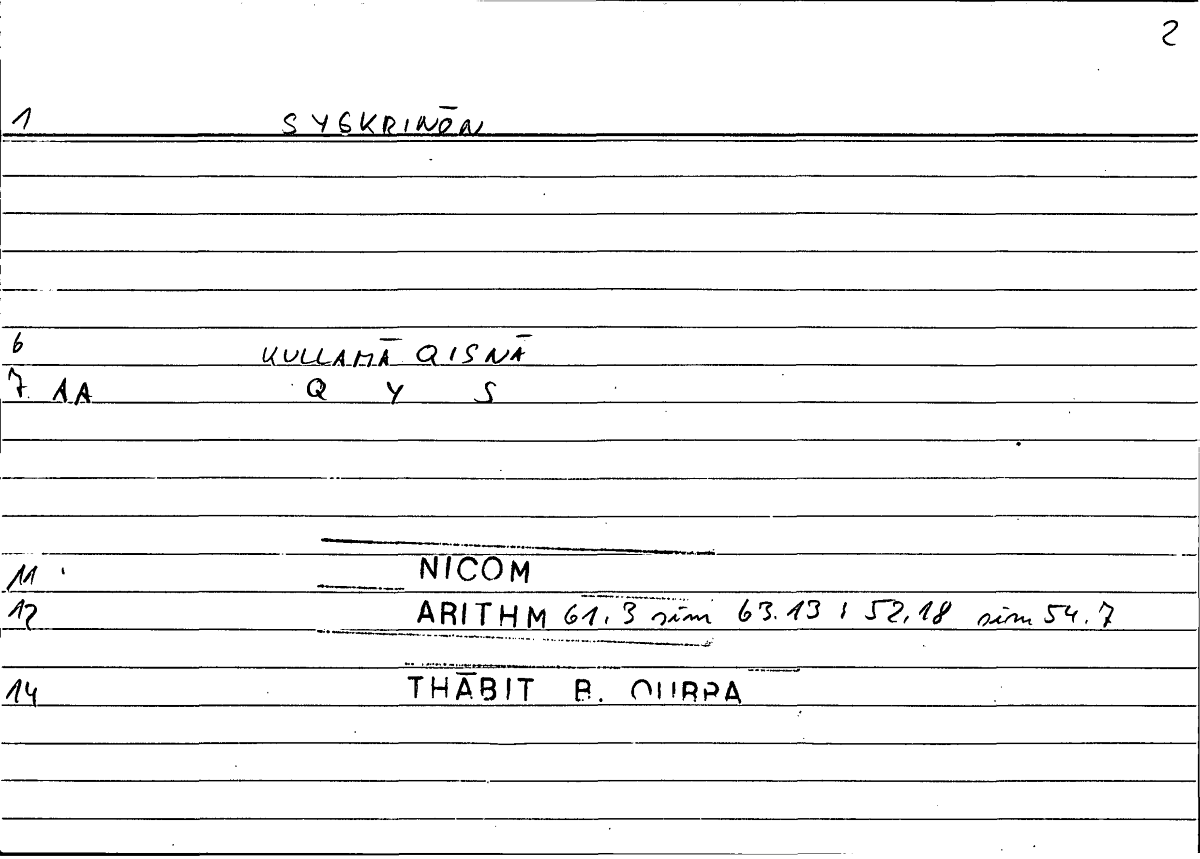 2
1 SYGKRINŌN
6 KULLAMĀ QISNĀ
7 1A Q Y S
11 NICOM
12 ARITHM 61.3 sim 63.13 ; 52.18 sim 54.7
14 THĀBIT B. QURRA